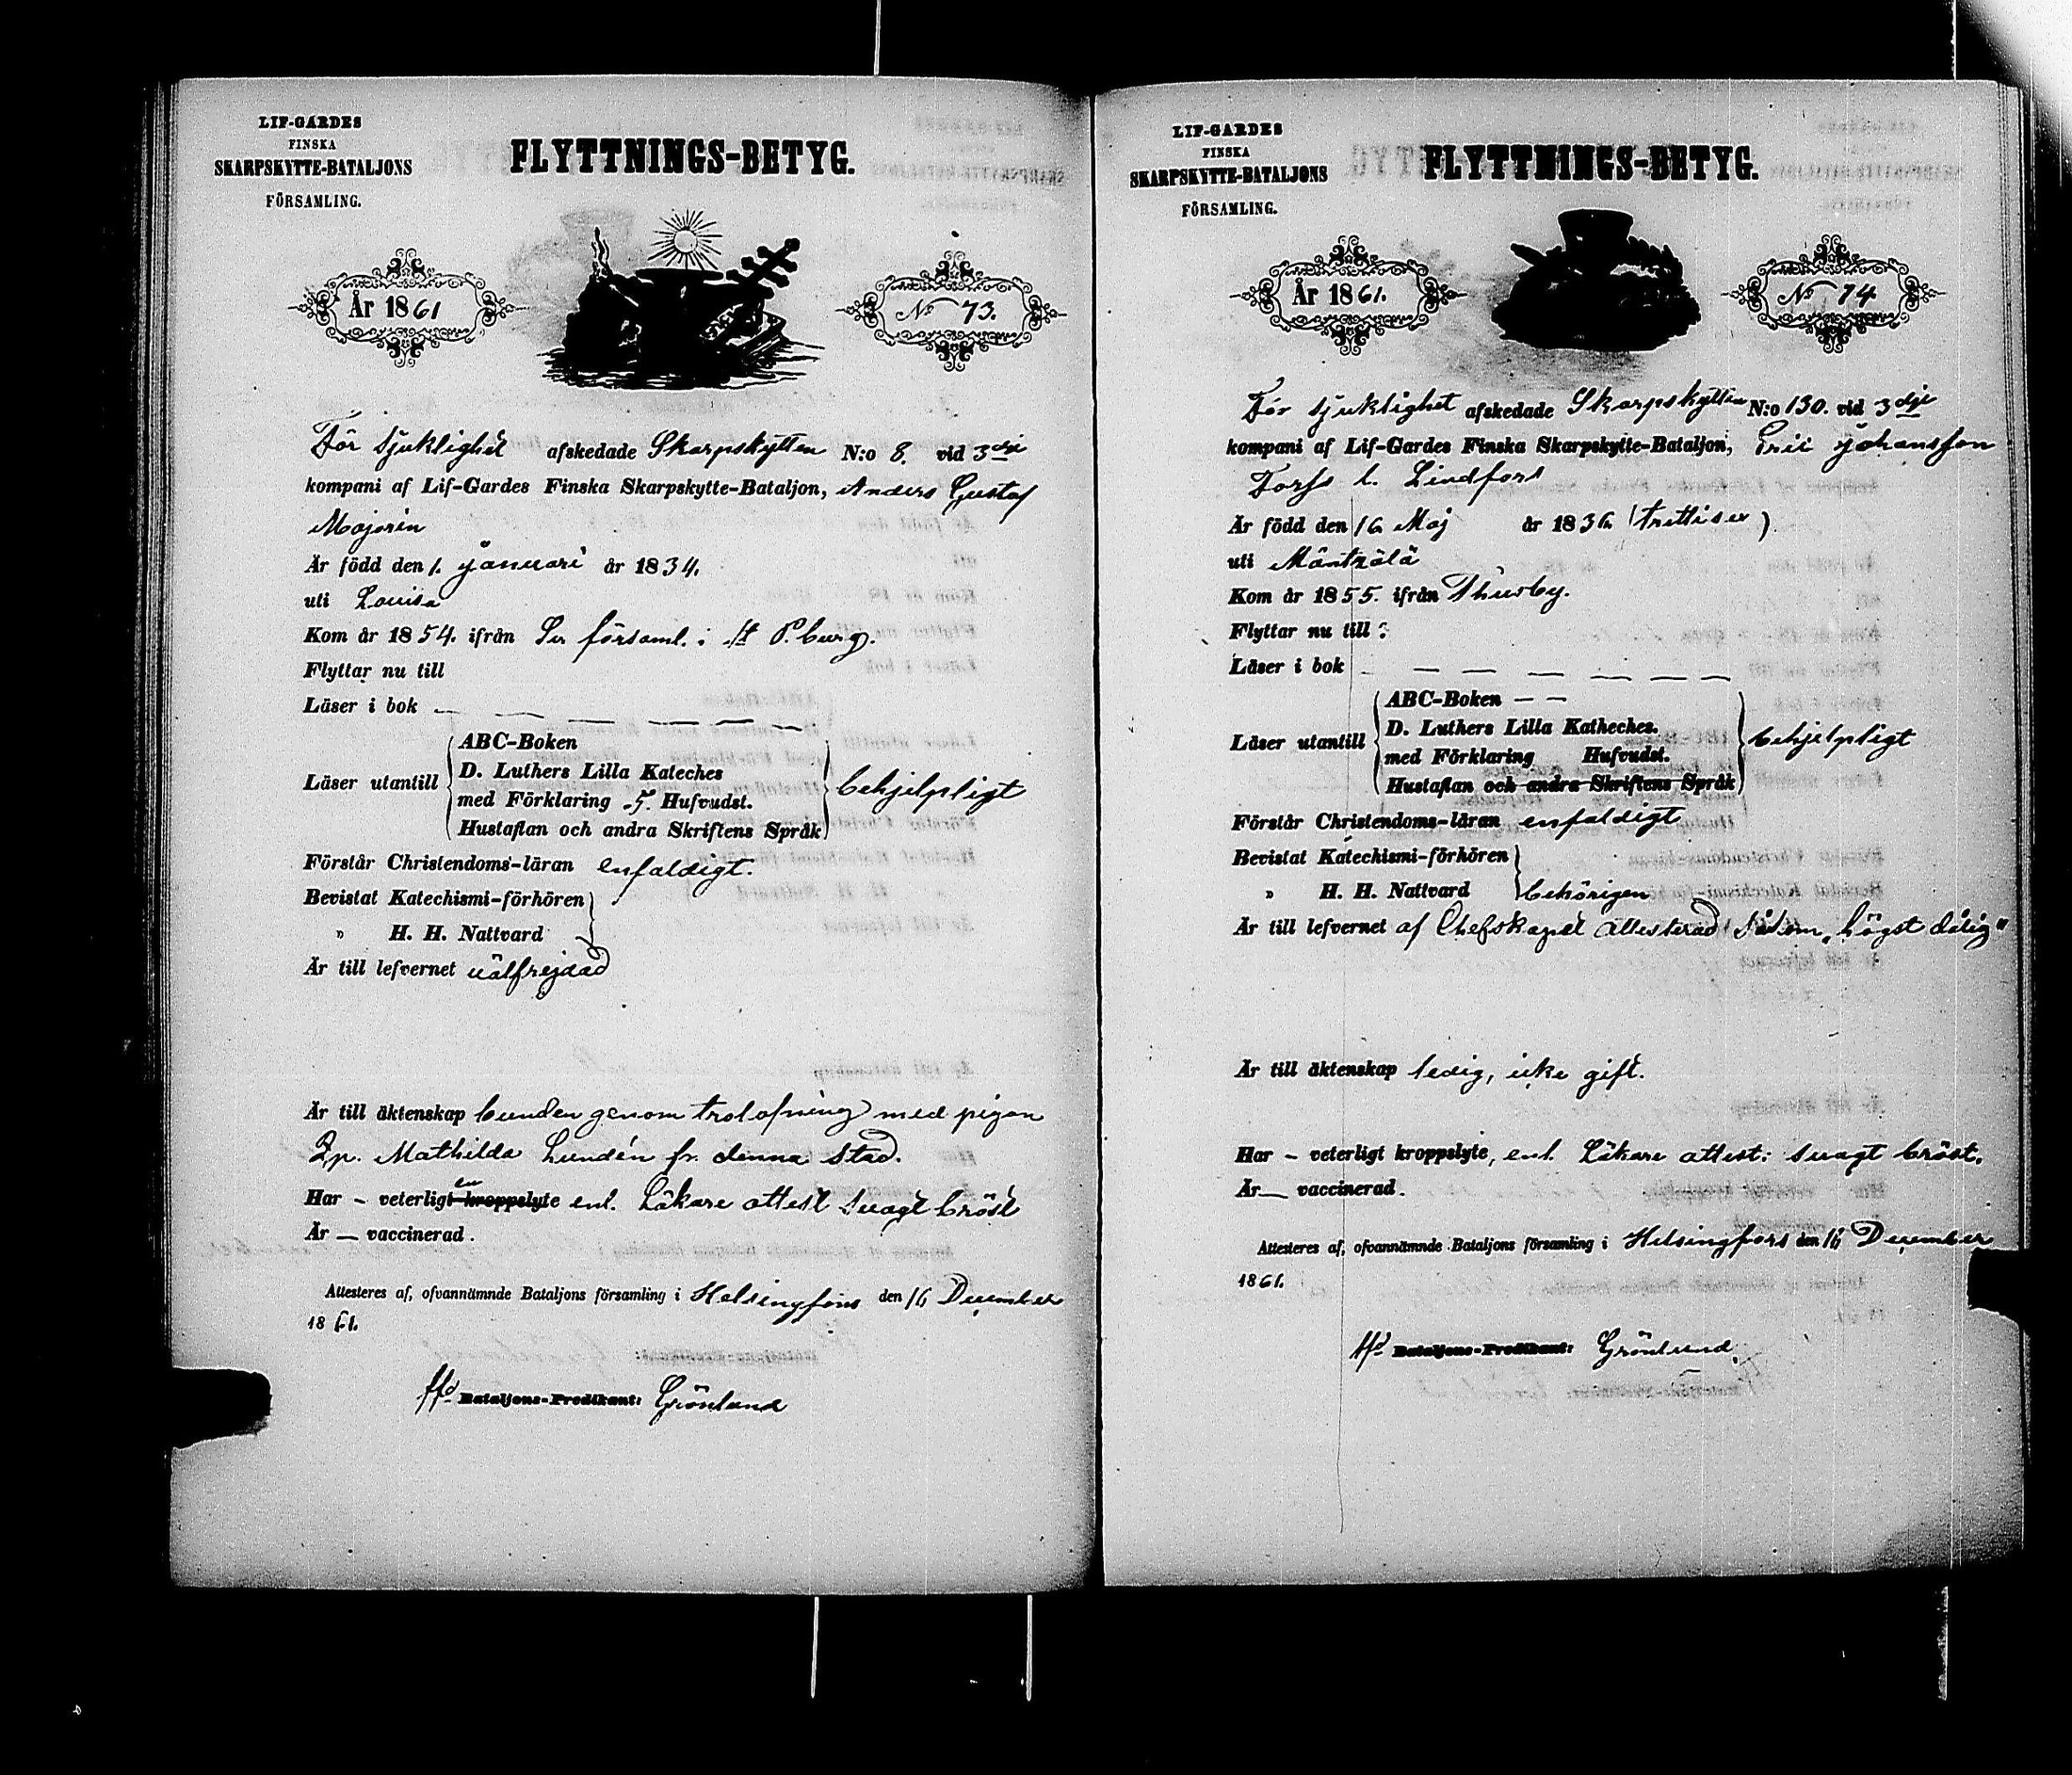 LIF-GARDES
FINSKA
SKARPSKYTTE-BATALJONS
FÖRSAMLING.
FLYTTNINGS-BETYG.
År 1861
No 73.
För sjuklighet afskedade Skarpskytten N:o 8. vid 3dje
kompani af Lif-Gardes Finska Skarpskytte-Bataljon, Anders Gustaf
Majorin
Är född den 1. Januari år 1834.
uti Louisa
Kom år 1854. ifrån Sv församl. i St P.burg.
Flyttar nu till
Läser i bok — — — — — —
Läser utantill
ABC-Boken
D. Luthers Lilla Kateches
med Förklaring 5. Hufvudst.
Hustaflan och andra Skriftens Språk
behjelpligt
Förstår Christendoms-läran enfaldigt.
Bevistat Katechismi-förhören
" H. H. Nattvard
Är till lefvernet välfrejdad
Är till äktenskap bunden genom trolofning med pigan
Mathilda Lundén fr. denna stad.
Har – veterligt kroppslyte enl. Läkare attest svagt bröst
Är — vaccinerad.
Attesteres af, ofvannämnde Bataljons församling i Helsingfors den 16 December
1861.
Bataljons-Predikant: Grönlund
LIF-GARDES
FINSKA
SKARPSKYTTE-BATALJONS
FÖRSAMLING.
FLYTTNINGS-BETYG.
År 1861.
No 74
För sjuklighet afskedade Skarpskytten N:o 130. vid 3dje
kompani af Lif-Gardes Finska Skarpskytte-Bataljon, Eric Johansson
Forss l. Lindfors
Är född den 16 Maj år 1836 (trettisex).
uti Mäntzälä
Kom år 1855. ifrån Thusby.
Flyttar nu till :
Läser i bok — — — — — —
Läser utantill
ABC-Boken — —
D. Luthers Lilla Katheches.
med Förklaring Hufvudst.
Hustaflan och andra Skriftens Språk
behjelpligt
Förstår Christendoms-läran enfaldigt
Bevistat Katechismi-förhören
" H. H. Nattvard
behörigen
Är till lefvernet af Chefskapet attesterad såsom „högst dålig"
Är till äktenskap ledig, icke gift.
Har – veterligt kroppslyte, enl. Läkare attest: svagt bröst.
Är — vaccinerad.
Attesteres af, ofvannämnde Bataljons församling i Helsingfors den 16 December
1861.
Bataljons-Predikant: Grönlund